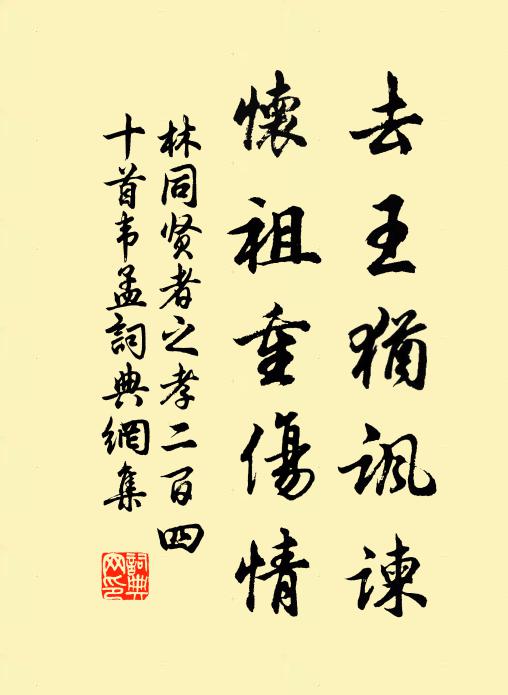 去王猶諷諫
懷祖重傷情
林同贤者之孝二百四
十首韦孟詞典網集
詞典
网印